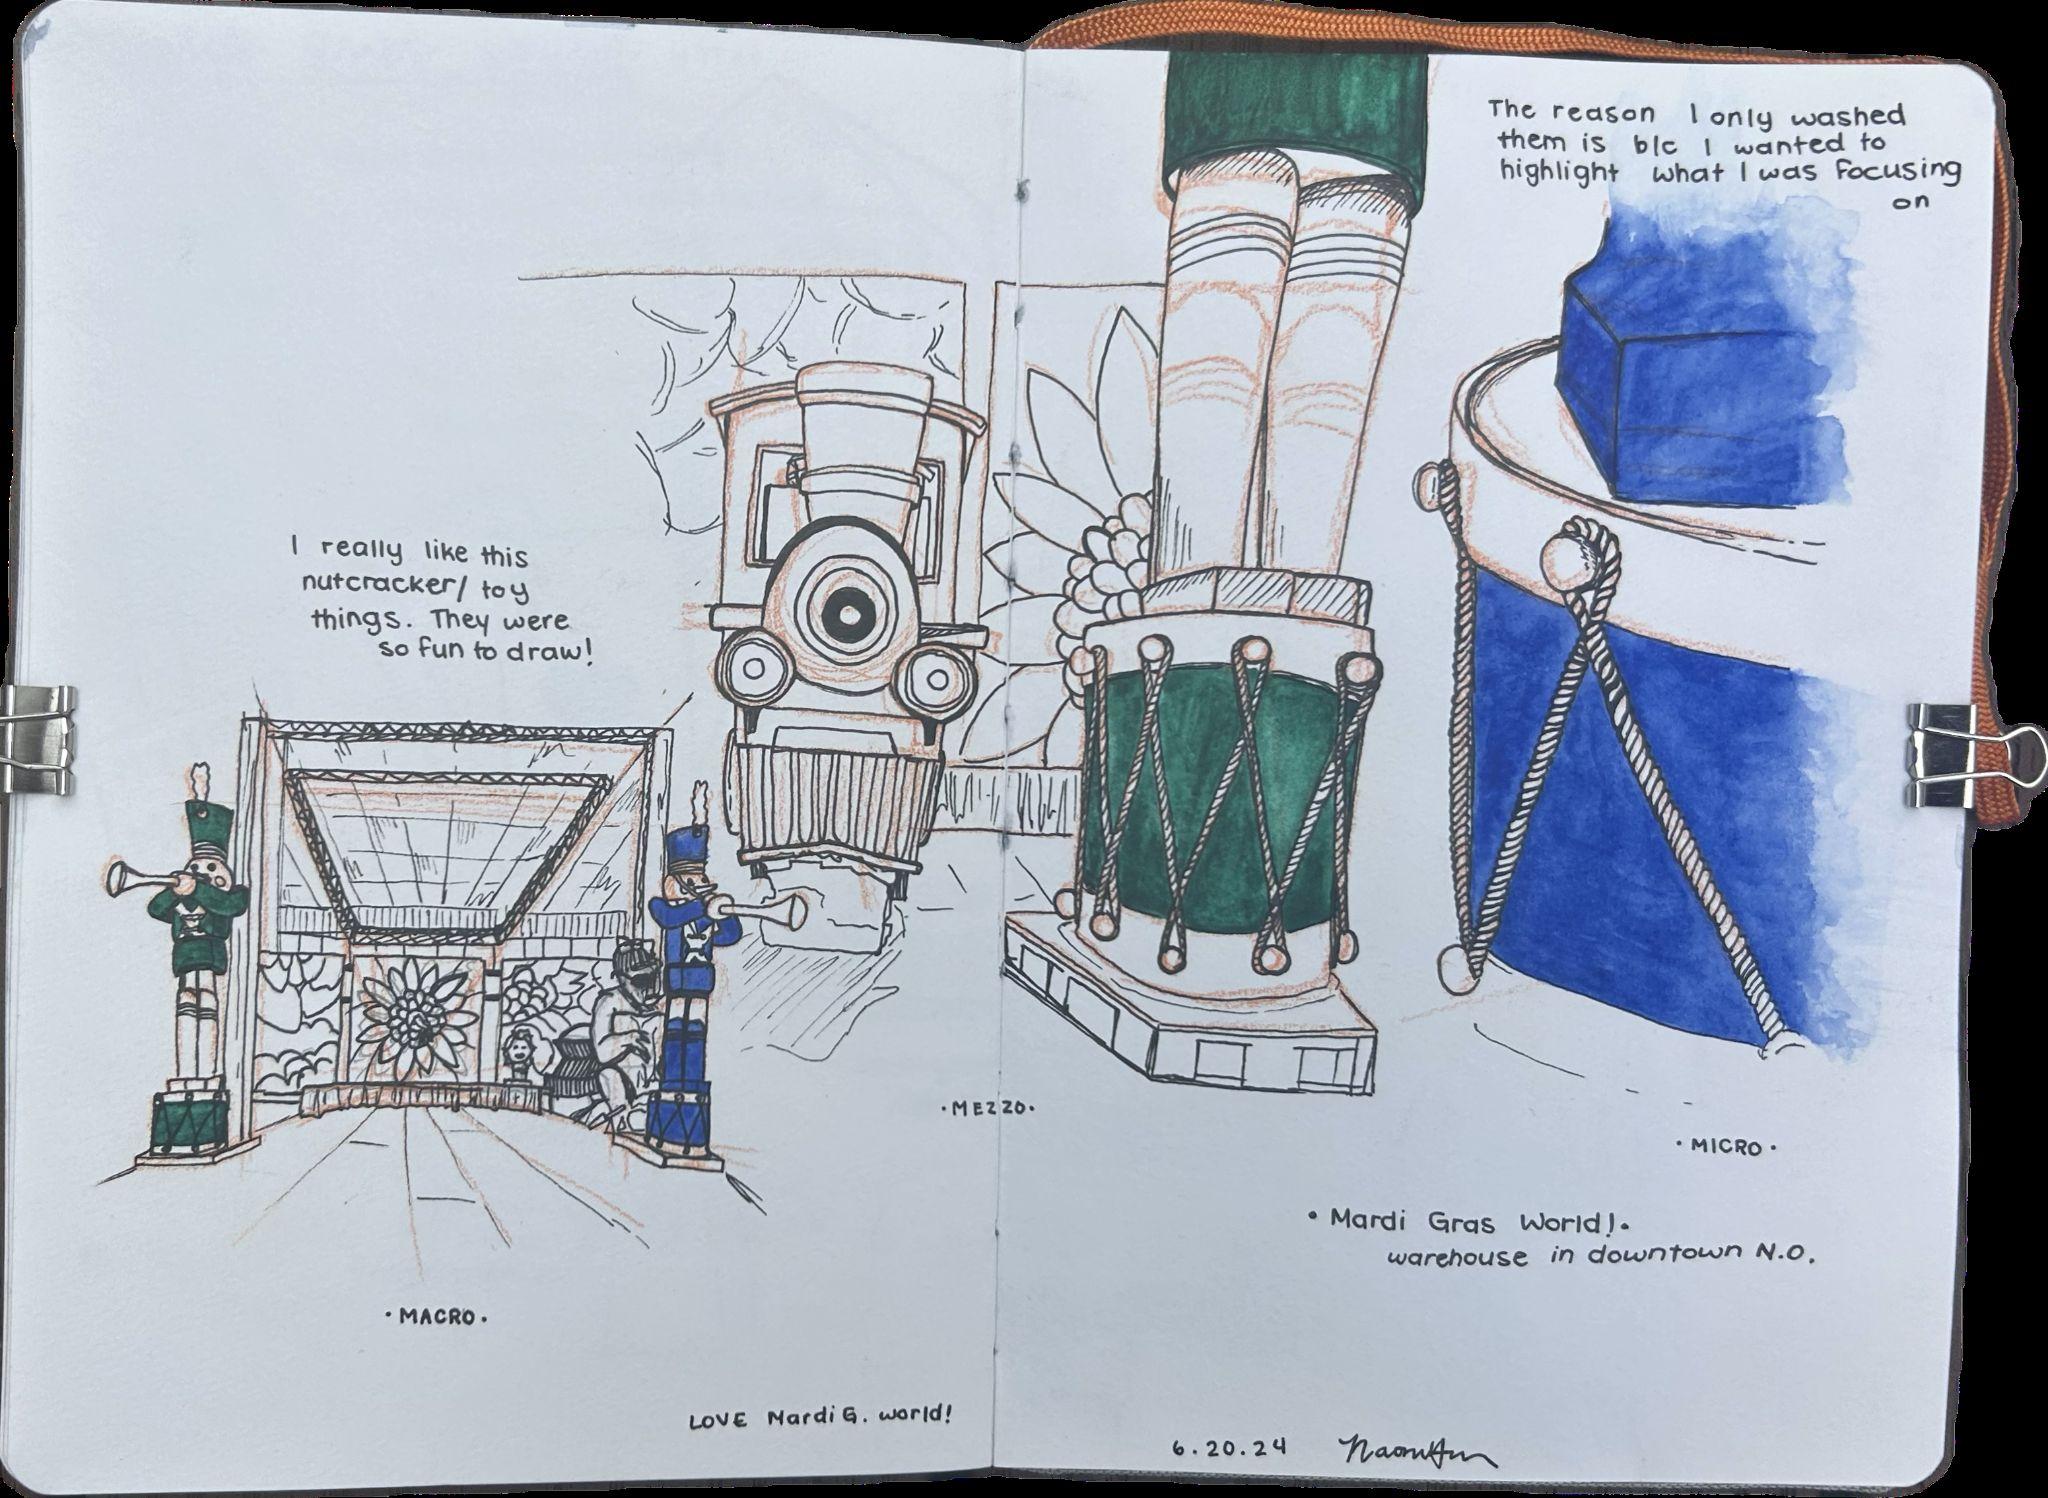 I really like this
nutcracker/ toy
things. They were
so fun to draw!
· MACRO ·
LOVE Mardi G. world!
The reason I only washed
them is b/c I wanted to
highlight what I was focusing
on
· MEZZO ·
· MICRO ·
• Mardi Gras World! •
warehouse in downtown N.O.
6.20.24